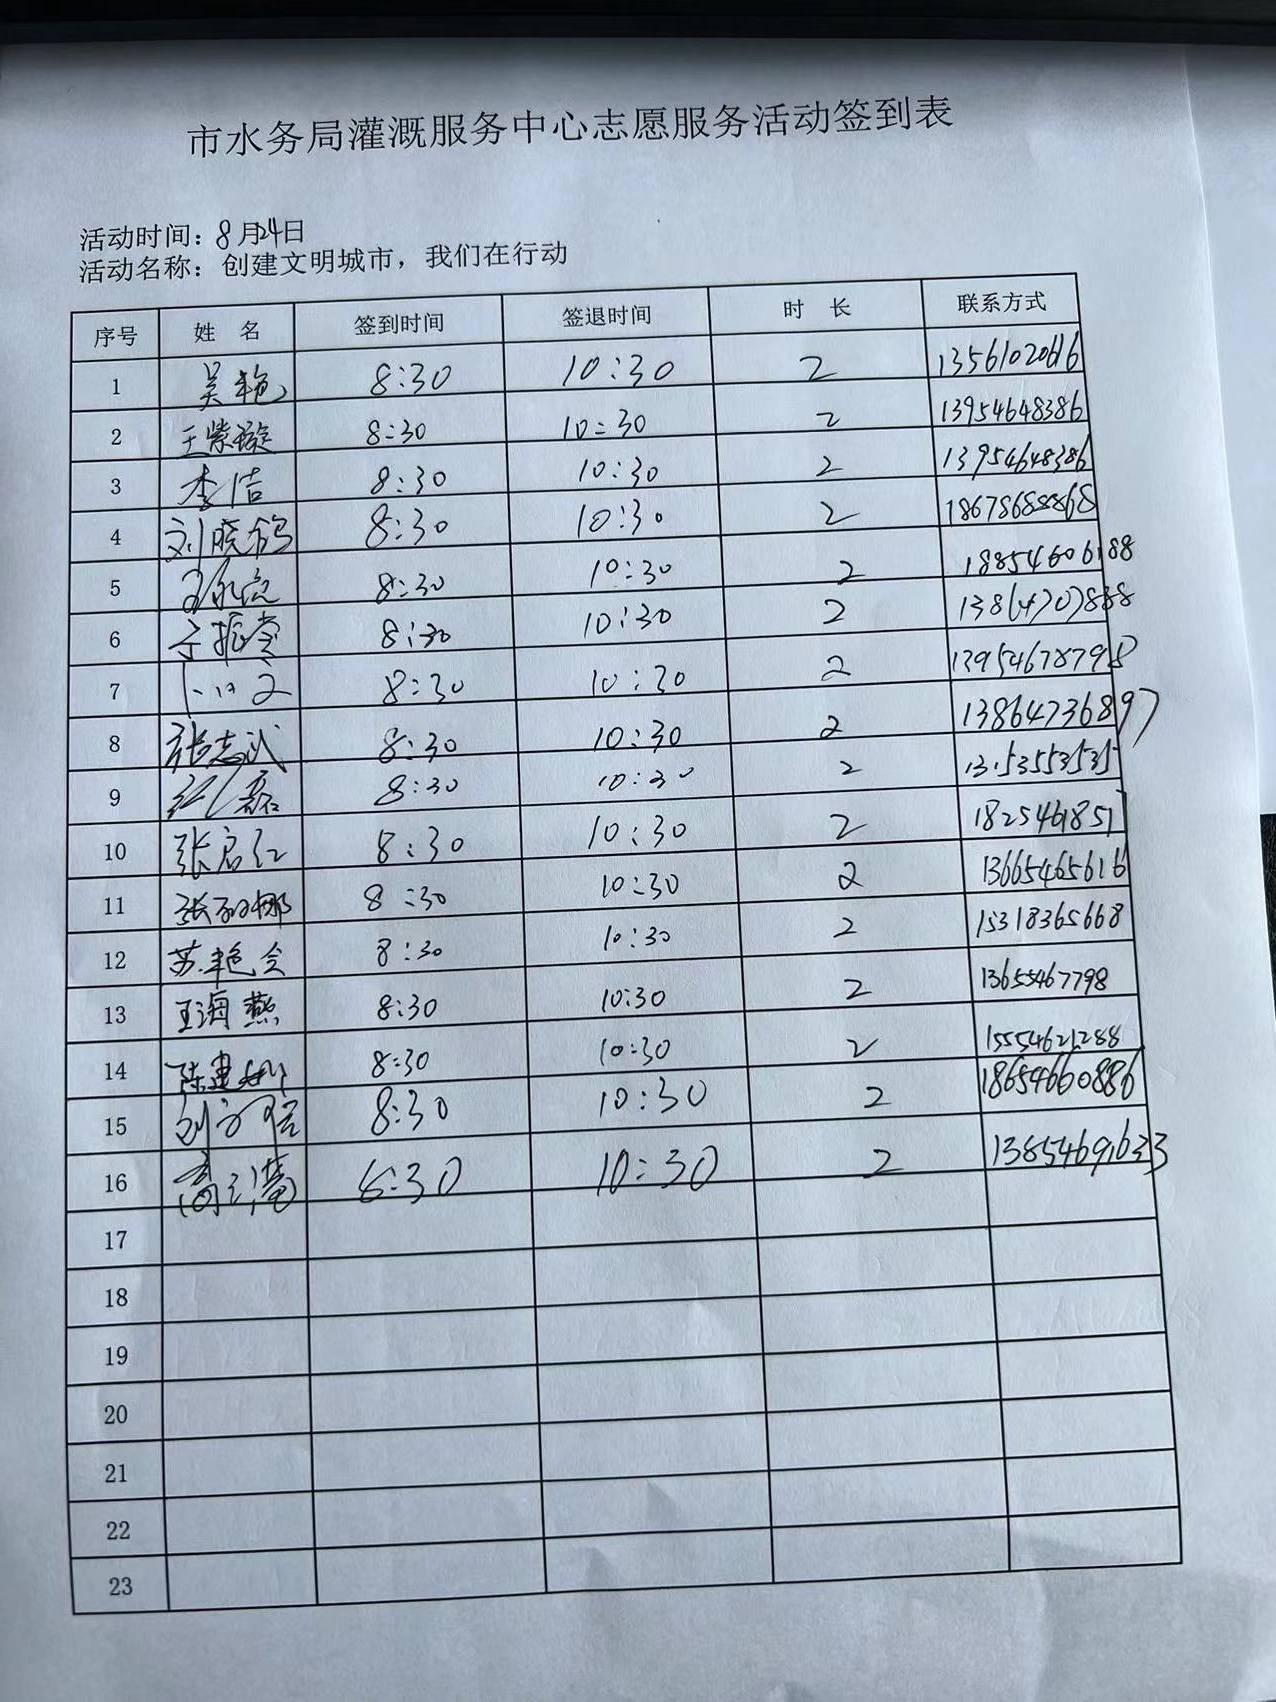 市水务局灌溉服务中心志愿服务活动签到表
活动时间：8月24日
活动名称：创建文明城市，我们在行动
序号 姓 名 签到时间 签退时间 时 长 联系方式
1 吴艳 8:30 10:30 2 13561020616
2 王紫璇 8:30 10:30 2 13954648386
3 李洁 8:30 10:30 2 13954648386
4 刘晓鸽 8:30 10:30 2 18678688868
5 8:30 10:30 2 18854606188
6 8:30 10:30 2 13864707888
7 8:30 10:30 2 13954678798
8 张志武 8:30 10:30 2 13864736897
9 红磊 8:30 10:30 2 13153553535
10 张启红 8:30 10:30 2
11 8:30 10:30 2 13665465616
12 苏艳会 8:30 10:30 2 15318365668
13 王海燕 8:30 10:30 2 13655467798
14 陈建 8:30 10:30 2 15554621288
15 8:30 10:30 2 18654660886
16 8:30 10:30 2 13854691633
17
18
19
20
21
22
23